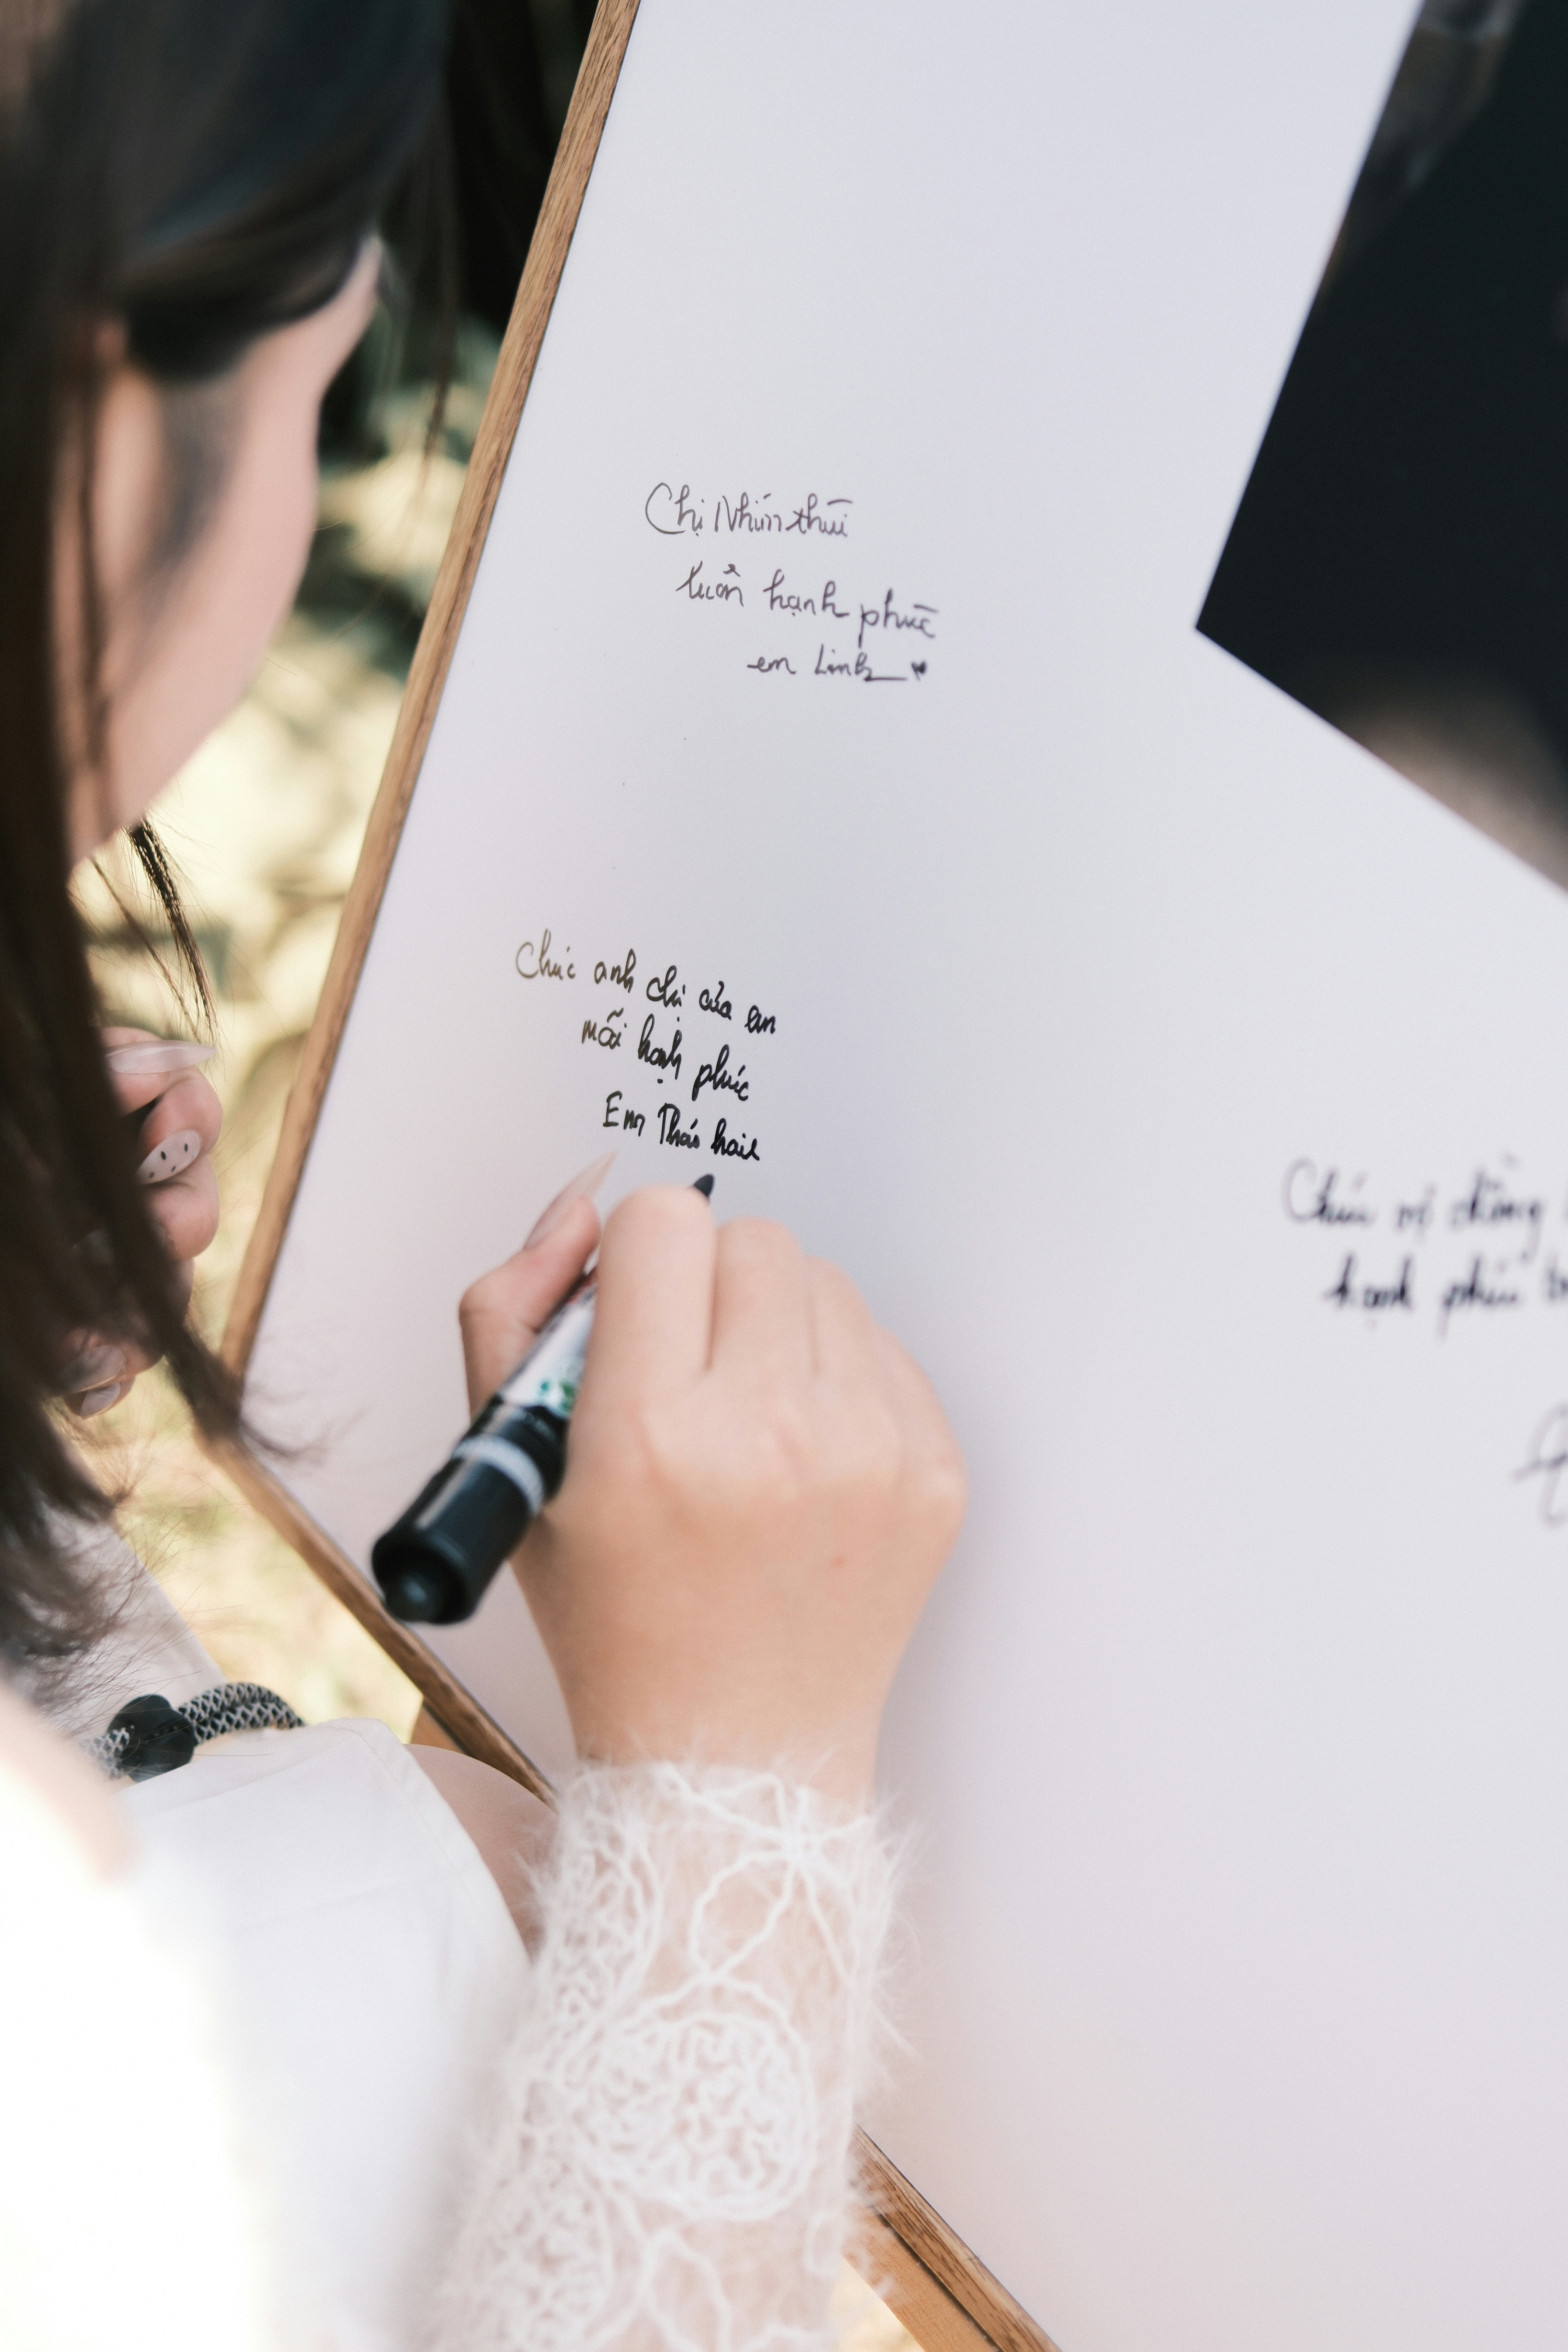 Chị Nhím thúi
luôn hạnh phúc
em Linh
Chúc anh chị của em
mãi hạnh phúc
Em Thảo
Chúc vợ chồng
hạnh phúc